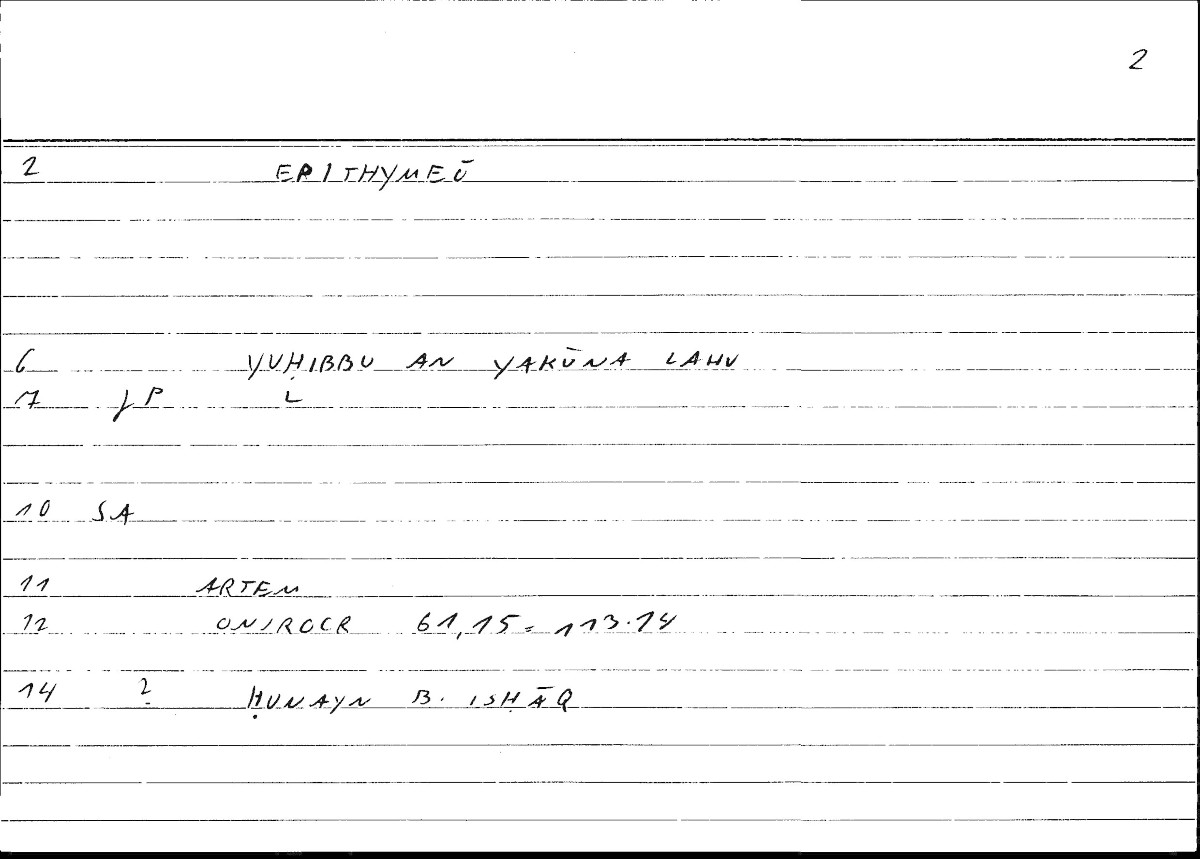 2
2 EPITHYMEŌ
6 YUḤIBBU AN YAKŪNA LAHU
7 JP L
10 SA
11 ARTEM
12 ONIROCR 61,15 = 113.14
14 2 ḤUNAYN B. ISḤĀQ